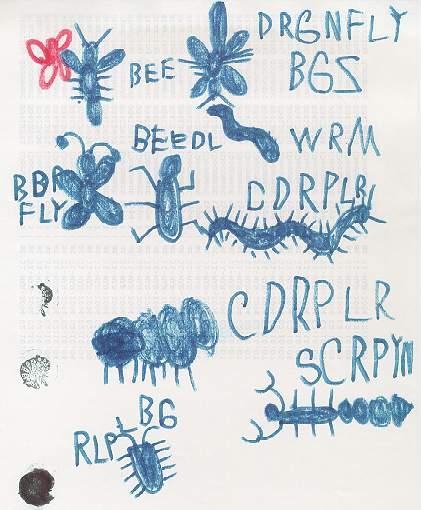 DRGNFLY
BEE
BGS
BEEDL
WRM
BBR
FLY
CDRPLR
CDRPLR
SCRPYN
BG
RLPL